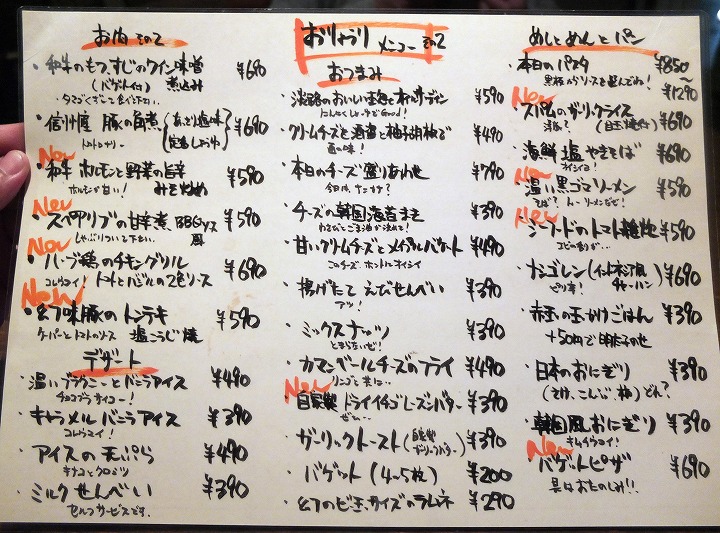 お肉 その2
・和牛のもつ、すじのワイン味噌煮込み ¥690
(バゲット付)
・信州産 豚の角煮 {あっさり塩味 ¥690
トロトロナリー
New
・和牛 ホルモンと野菜の旨辛みそ炒め ¥590
ホルモンが甘い!
New
・スペアリブの甘辛煮 BBQソース風 ¥590
しゃぶりついて下さい。
New
・ハーブ鶏のチキングリル ¥690
コレウマイ! トマトとバジルの2色ソース
New
・幻味豚のトンテキ ¥590
ケーパーとトマトのソース 塩こうじ焼
デザート
・温いブラウニーとバニラアイス ¥490
チョコプラサイコー!
・キャラメルバニラアイス ¥390
コレウマイ!
・アイスの天ぷら ¥490
キナコとクロミツ
・ミルクせんべい ¥390
セルフサービスです。
おりゃり メニュー その2
おつまみ
・淡路のおいしい玉ねぎとオイルサーデン ¥590
にんにくしょうゆでGood!
・クリームチーズと酒盗と柚子胡椒で ¥490
・本日のチーズ盛りあわせ ¥790
今日は、ナニカナ?
・チーズの韓国海苔まき ¥390
わさびとごま油が決めて!
・甘いクリームチーズとメイプルバケット ¥490
このチーズ、ホントにオイシイ
・揚げたて えびせんべい ¥390
アツ!
・ミックスナッツ ¥390
とまらないゼ!
・カマンベールチーズのフライ ¥490
リンゴと共に…
New
・自家製 ドライイチゴレーズンバター ¥390
ぜひ…
・ガーリックトースト(自家製ガーリックバター) ¥390
・バゲット (4~5枚) ¥200
・幻のビー玉サイズのラムネ ¥290
めしとめんとパン
・本日のパスタ ¥850~¥1290
黒板からソースを選んでね!
New
・スパムのガーリックライス ¥690
(目玉焼付)
・海鮮塩やきそば ¥690
オイシイヨ!
New
・温い黒ゴマソーメン ¥590
そば? ソーメンだゼ!
New
・シーフードのトマト雑炊 ¥590
・ナシゴレン(インドネシア風チャーハン) ¥690
ピリ辛!
・赤玉の玉子かけごはん ¥390
+50円で明太子のせ
・日本のおにぎり ¥390
(さけ、こんぶ、梅) どれ?
・韓国風おにぎり ¥390
キムチウマイ!
New
・バゲットピザ ¥690
具はおたのしみ!!